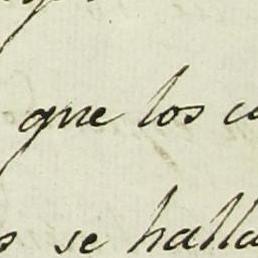 que los
se halla